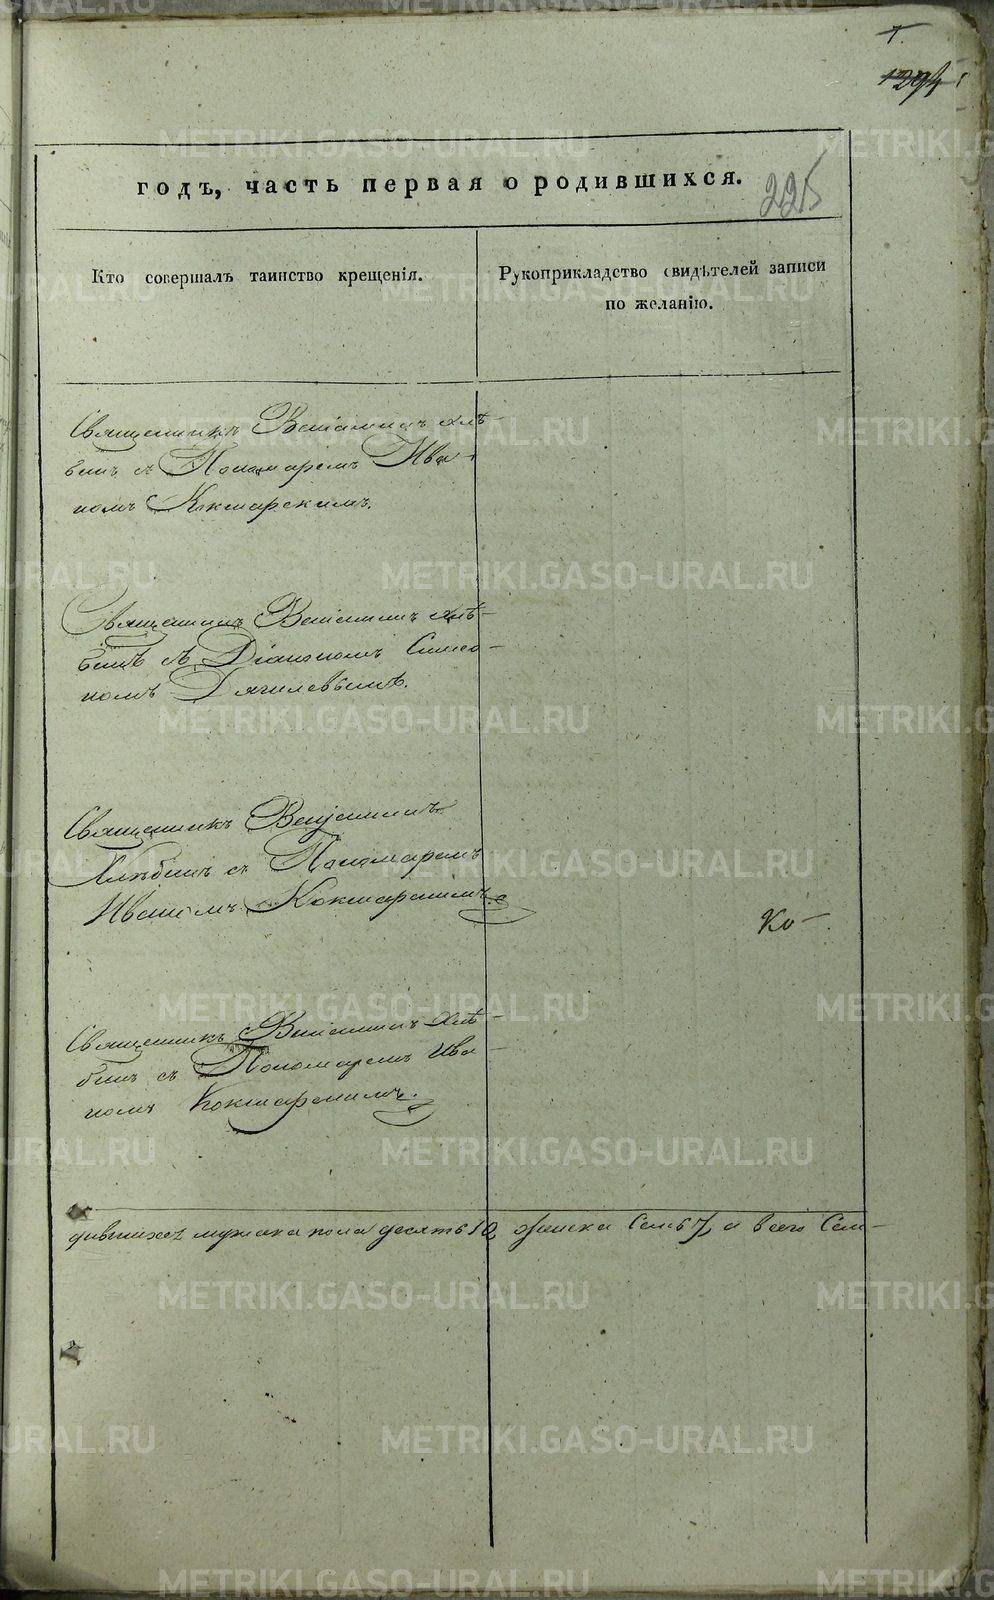 7.
1294
годъ, часть первая о родившихся.
225
Кто совершалъ таинство крещенія.
Рукоприкладство свидѣтелей записи
по желанію.
Священникъ Веніаминъ Хлѣ-
бинъ съ Пономаремъ Ива-
номъ Кокшарскимъ.
Священникъ Веніаминъ Хлѣ-
бинъ съ Діакономъ Симео-
номъ Дягилевымъ.
Священникъ Веніаминъ
Хлѣбинъ съ Пономаремъ
Иваномъ Кокшарскимъ.
Ко-
Священникъ Веніаминъ Хлѣ-
бинъ съ Пономаремъ Ива-
номъ Кокшарскимъ.
дившихся мужска пола десять 10, женска Семь 7, а всего Сем-
METRIKI.GASO-URAL.RU